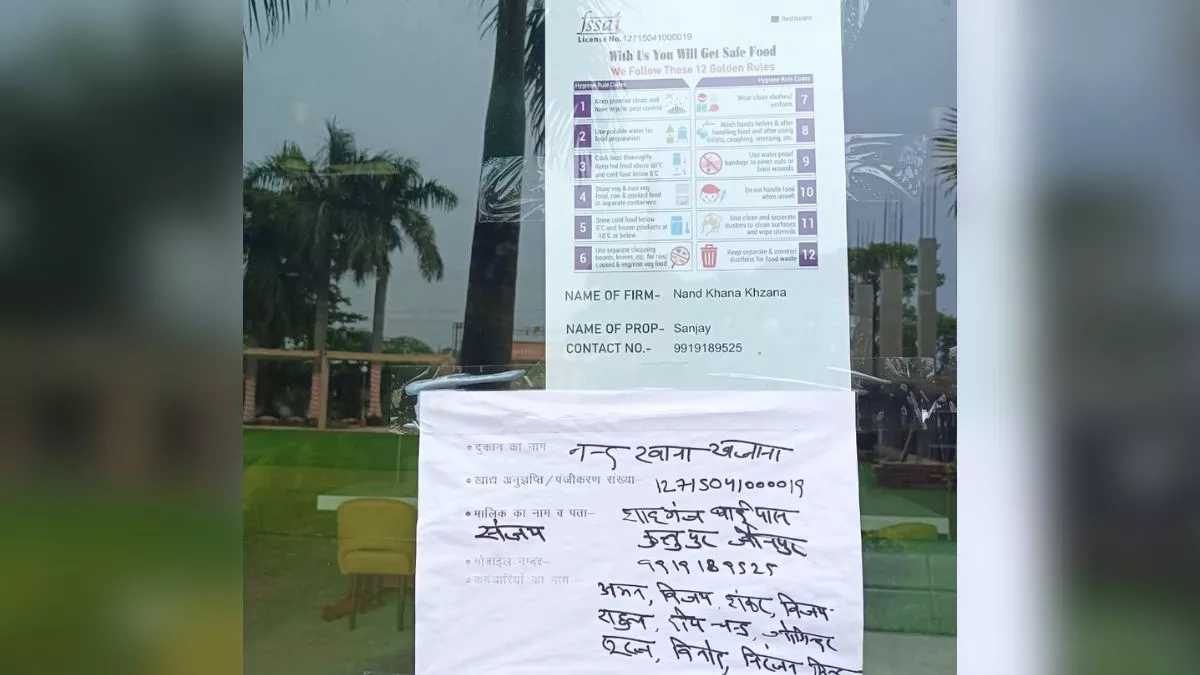 fssai
Restaurant
License No. 12715041000019
With Us You Will Get Safe Food
We Follow These 12 Golden Rules
Hygiene Rule Codes
Hygiene Rule Codes
1 Keep premise clean and
have regular pest control
Wear clean clothes/
uniform 7
2 Use potable water for
food preparation
Wash hands before & after
handling food and after using
toilets, coughing, sneezing, etc. 8
3 Cook food thoroughly
Keep hot food above 60°C
and cold food below 5°C
Use water proof
bandage to cover cuts or
burn wounds 9
4 Store veg & non veg
food, raw & cooked food
in separate containers
Do not handle food
when unwell 10
5 Store cold food below
5°C and frozen products at
-18°C or below
Use clean and separate
dusters to clean surfaces
and wipe utensils 11
6 Use separate chopping
boards, knives, etc. for raw/
cooked & veg/non veg food
Keep separate & covered
dustbins for food waste 12
NAME OF FIRM- Nand Khana Khzana
NAME OF PROP- Sanjay
CONTACT NO.- 9919189525
• दुकान का नाम नन्द खाना खजाना
• खाद्य अनुज्ञप्ति/पंजीकरण संख्या- 12715041000019
• मालिक का नाम व पता- शाहगंज बाईपास
संजय जौनपुर
• मोबाइल नम्बर- 9919189525
• कर्मचारियों का नाम
अमन, विजय शंकर, विजय
राहुल, दीप चन्द्र, जोगिन्दर
सूरज, विनोद, निरंजन